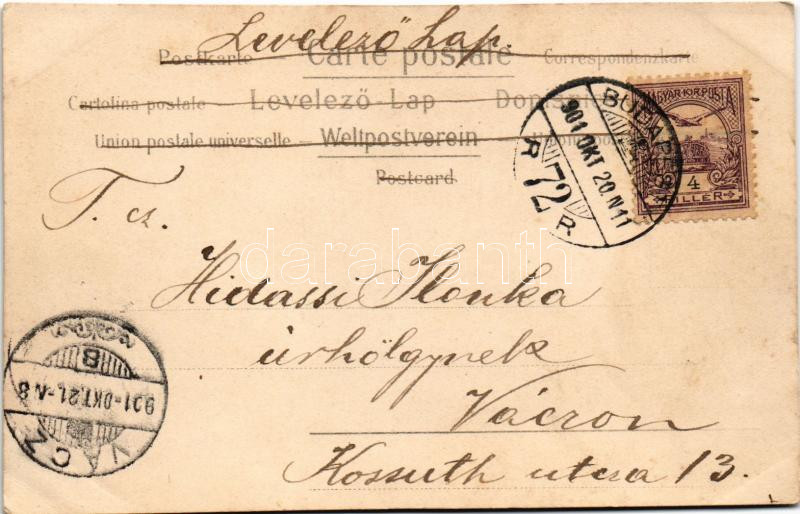 Levelező Lap.
Postkarte Carte postale Correspondenzkarte
Cartolina postale Levelező-Lap
Union postale universelle Weltpostverein
Postcard
BUDAPEST
901 OKT 20. N 11
R 72 R
MAGYAR KIR. POSTA
4
FILLER
T. cz.
Hidassi Ilonka
úrhölgynek
Váczon
Kossuth utcsa 13.
VÁCZ
901-OKT.21.-N8
B
darabanth